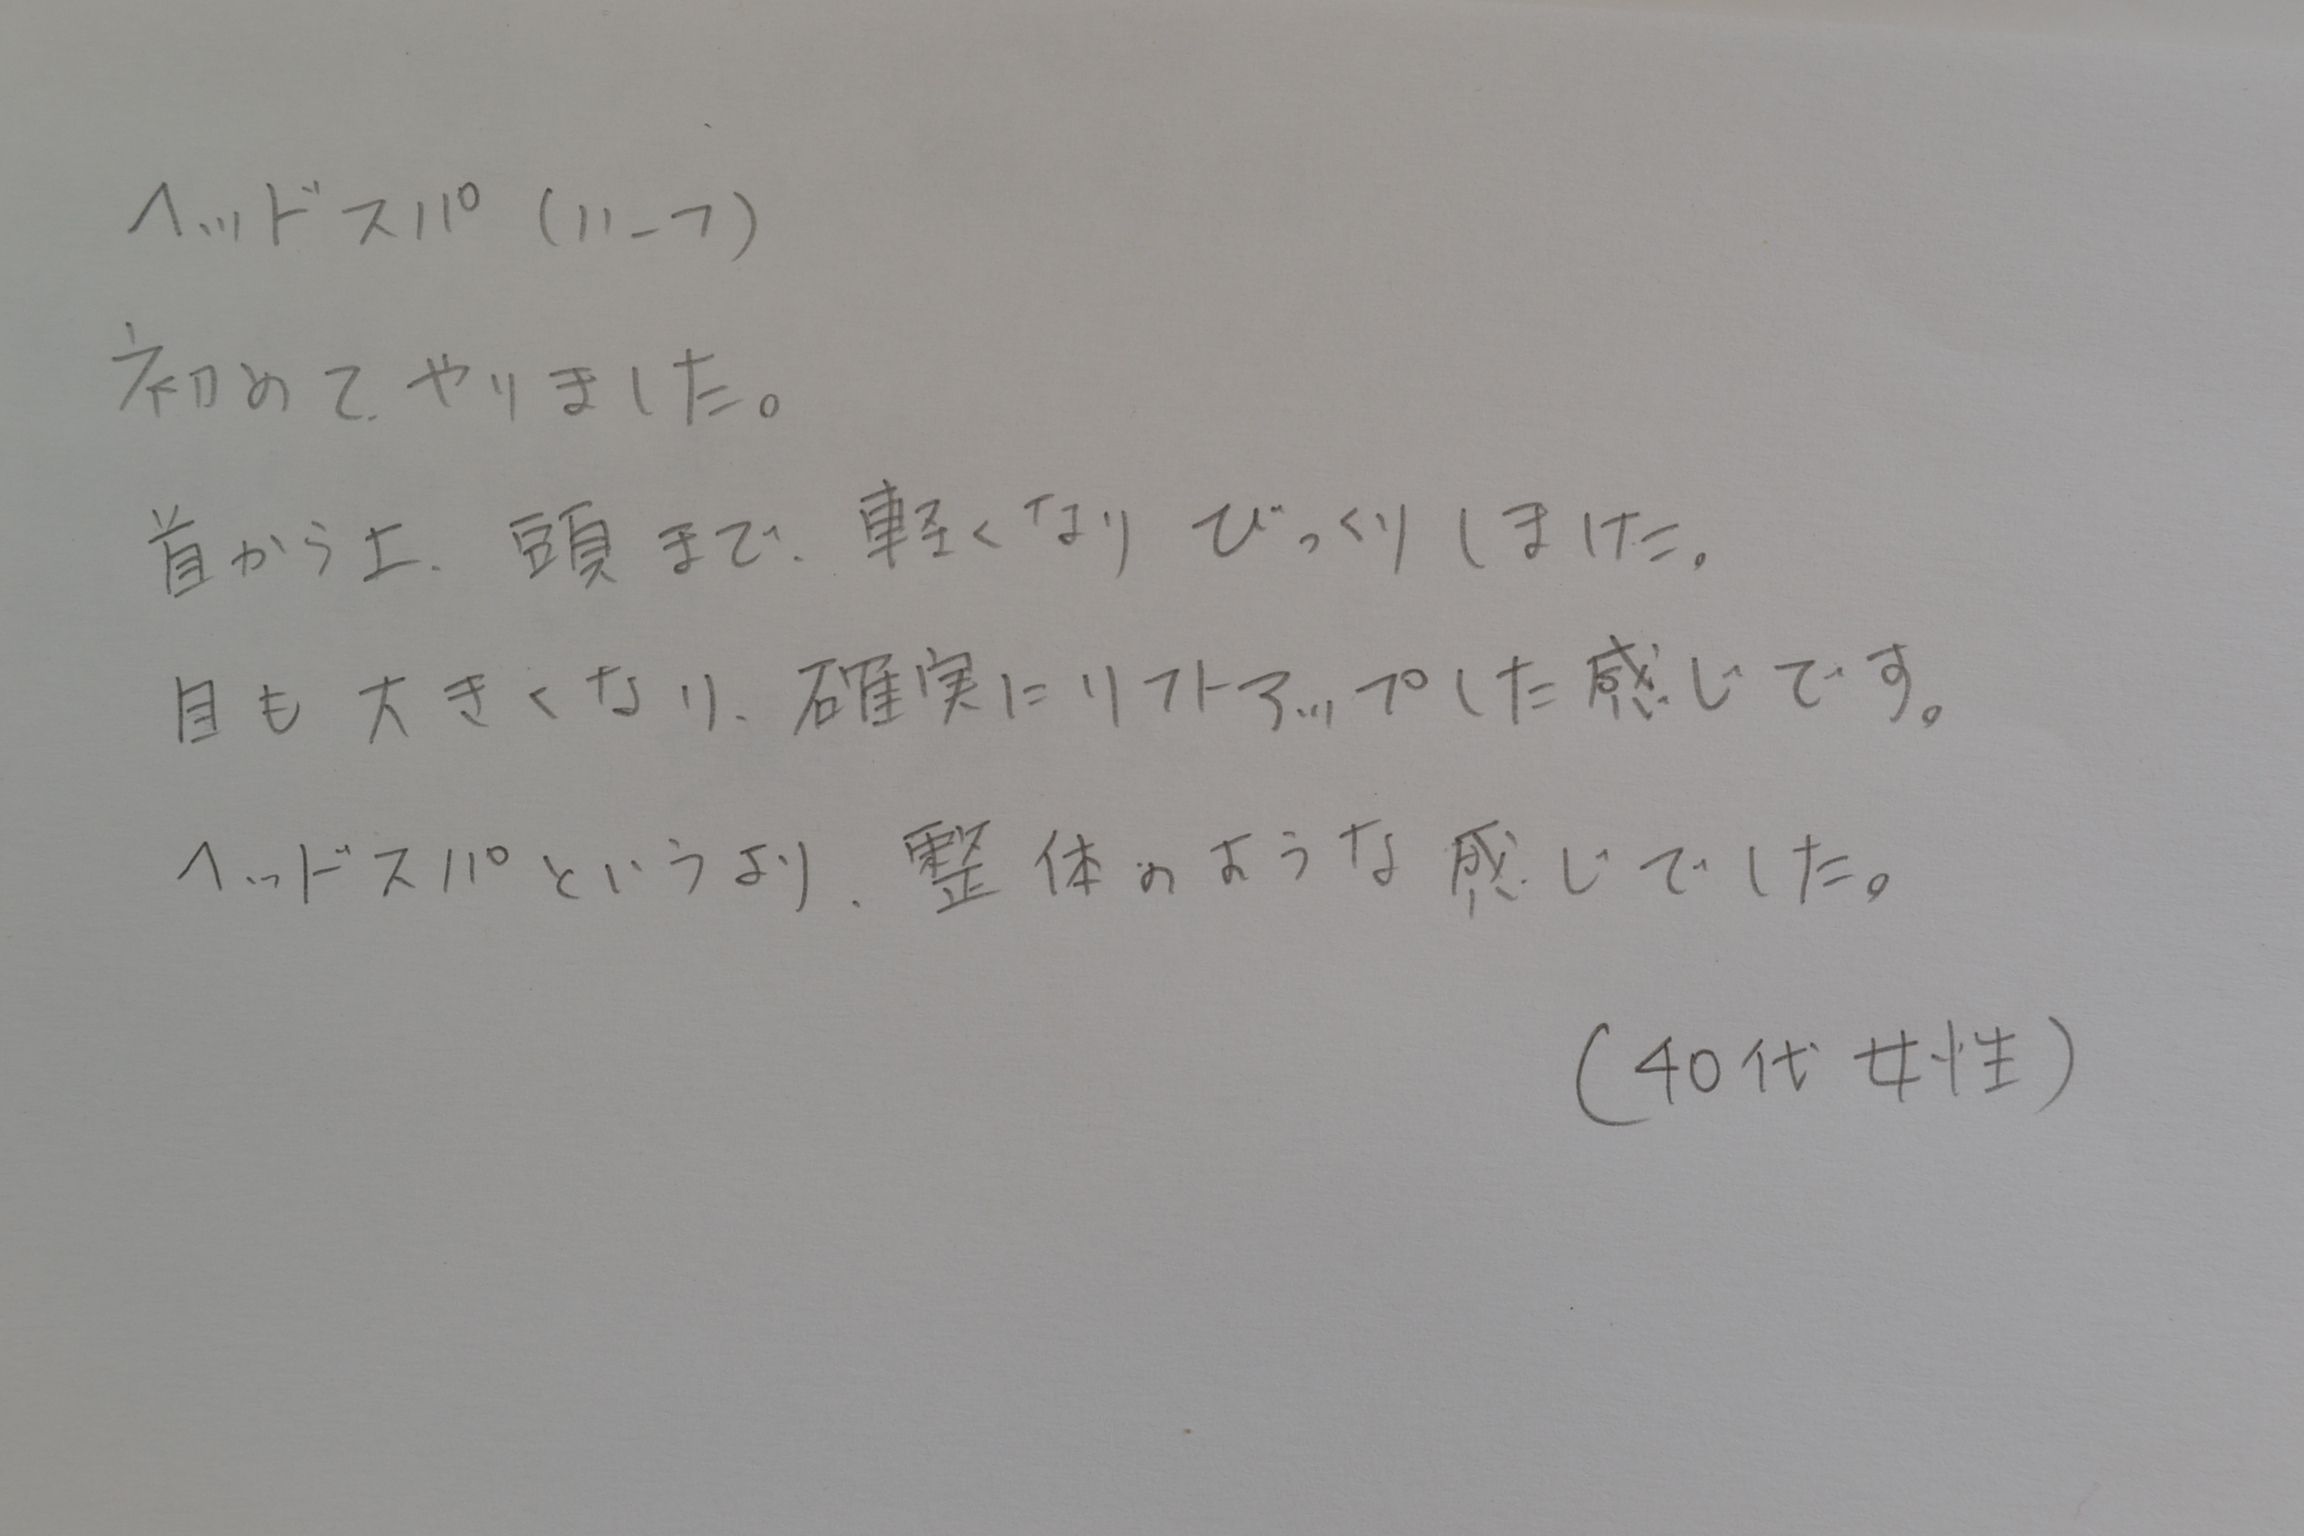 ヘッドスパ（ハーフ）
初めてやりました。
首から上、頭まで、軽くなりびっくりしました。
目も大きくなり、確実にリフトアップした感じです。
ヘッドスパというより、整体のような感じでした。
（40代 女性）